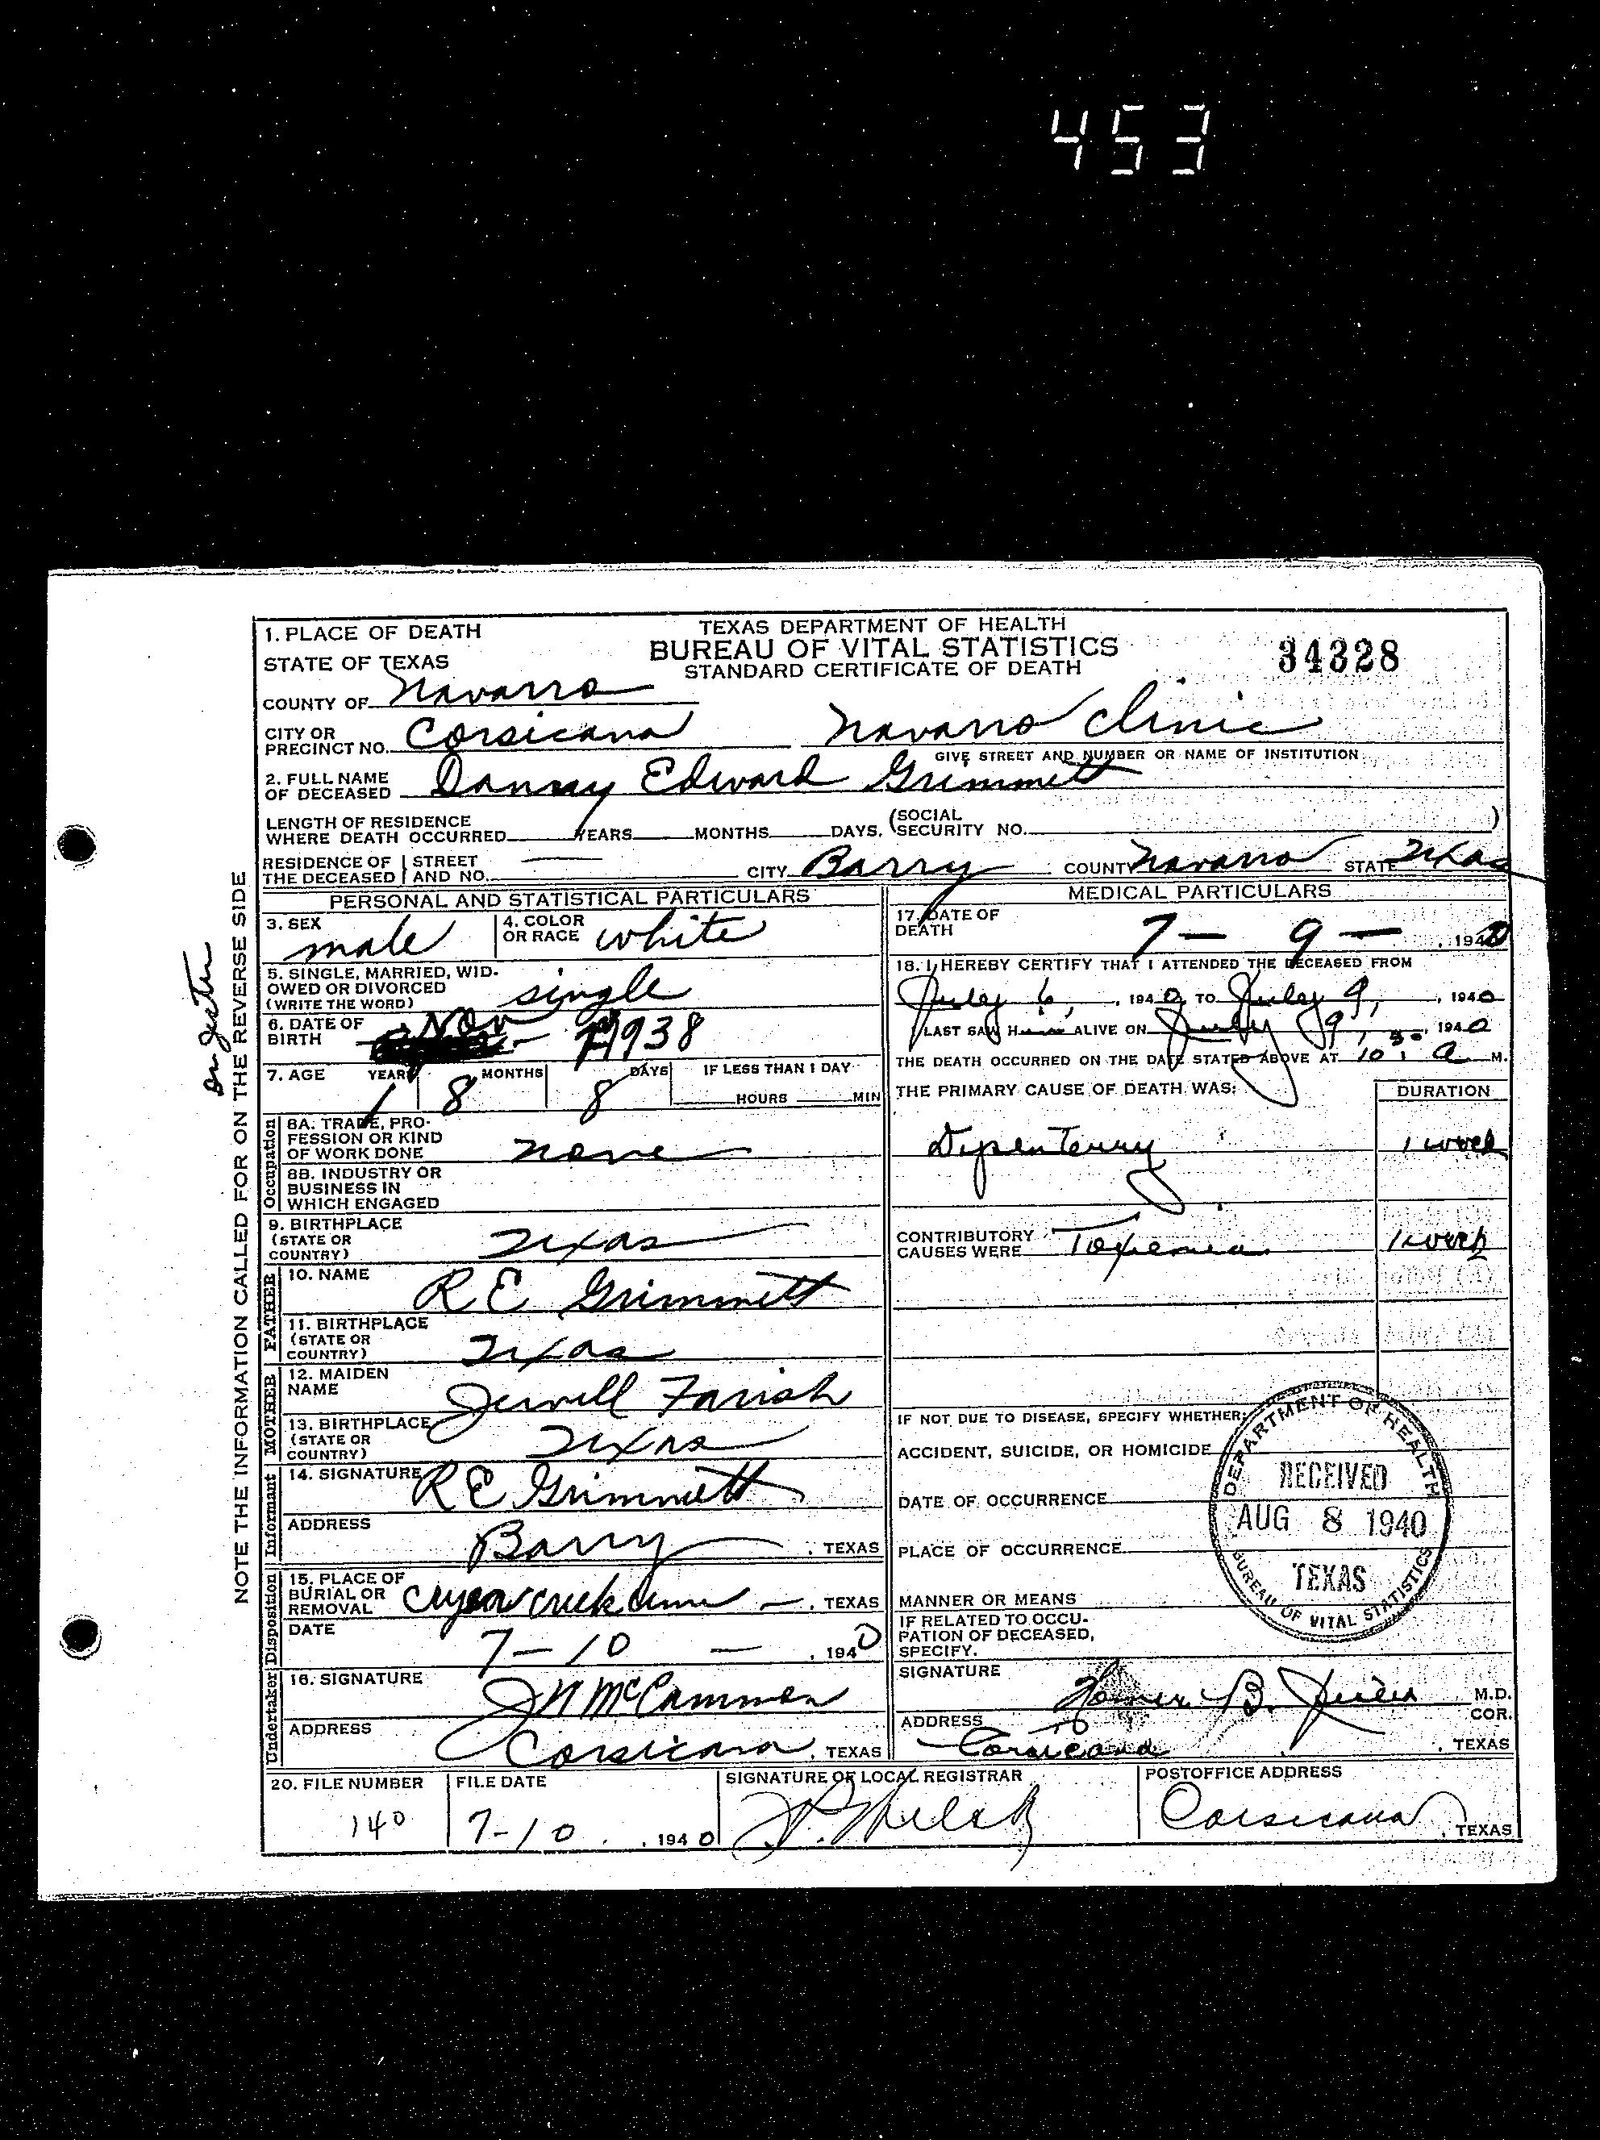 453
1. PLACE OF DEATH
TEXAS DEPARTMENT OF HEALTH
BUREAU OF VITAL STATISTICS
STANDARD CERTIFICATE OF DEATH
34328
STATE OF TEXAS
COUNTY OF Navarro
CITY OR PRECINCT NO. Corsicana Navarro Clinic
GIVE STREET AND NUMBER OR NAME OF INSTITUTION
2. FULL NAME OF DECEASED Danny Edward Grimmett
LENGTH OF RESIDENCE WHERE DEATH OCCURRED YEARS MONTHS DAYS. (SOCIAL SECURITY NO. )
RESIDENCE OF THE DECEASED STREET AND NO. — CITY Barry COUNTY Navarro STATE Texas
PERSONAL AND STATISTICAL PARTICULARS
3. SEX male
4. COLOR OR RACE white
5. SINGLE, MARRIED, WIDOWED OR DIVORCED (WRITE THE WORD) single
6. DATE OF BIRTH Nov - 1938
7. AGE YEARS 1 MONTHS 8 DAYS 8 IF LESS THAN 1 DAY HOURS MIN
Occupation
8A. TRADE, PROFESSION OR KIND OF WORK DONE none
8B. INDUSTRY OR BUSINESS IN WHICH ENGAGED
9. BIRTHPLACE (STATE OR COUNTRY) Texas
FATHER
10. NAME R E Grimmett
11. BIRTHPLACE (STATE OR COUNTRY) Texas
MOTHER
12. MAIDEN NAME Jewell Farish
13. BIRTHPLACE (STATE OR COUNTRY) Texas
Informant
14. SIGNATURE R E Grimmett
ADDRESS Barry, TEXAS
Disposition
15. PLACE OF BURIAL OR REMOVAL creek cem —, TEXAS
DATE 7-10 —, 1940
Undertaker
16. SIGNATURE J N McCammon
ADDRESS Corsicana, TEXAS
MEDICAL PARTICULARS
17. DATE OF DEATH 7 - 9 - , 1940
18. I HEREBY CERTIFY THAT I ATTENDED THE DECEASED FROM
July 6, , 1940 TO July 9, , 1940
LAST SAW Him ALIVE ON July 9, , 1940
THE DEATH OCCURRED ON THE DATE STATED ABOVE AT 10:30 a M.
THE PRIMARY CAUSE OF DEATH WAS: DURATION
Dysentery 1 week
CONTRIBUTORY CAUSES WERE Toxemia 1 week
IF NOT DUE TO DISEASE, SPECIFY WHETHER:
ACCIDENT, SUICIDE, OR HOMICIDE
DATE OF OCCURRENCE
PLACE OF OCCURRENCE
MANNER OR MEANS
IF RELATED TO OCCUPATION OF DECEASED, SPECIFY.
SIGNATURE Homer B. M.D. COR.
ADDRESS Corsicana, TEXAS
DEPARTMENT OF HEALTH
RECEIVED
AUG 8 1940
TEXAS
BUREAU OF VITAL STATISTICS
20. FILE NUMBER 140
FILE DATE 7-10, 1940
SIGNATURE OF LOCAL REGISTRAR
POSTOFFICE ADDRESS Corsicana, TEXAS
NOTE THE INFORMATION CALLED FOR ON THE REVERSE SIDE